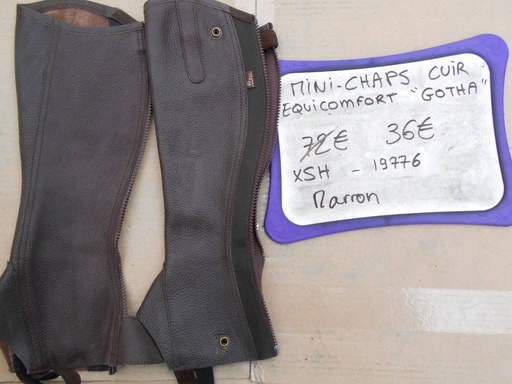 MINI-CHAPS CUIR
EQUICOMFORT "GOTHA"
72€ 36€
XSH - 19776
Marron